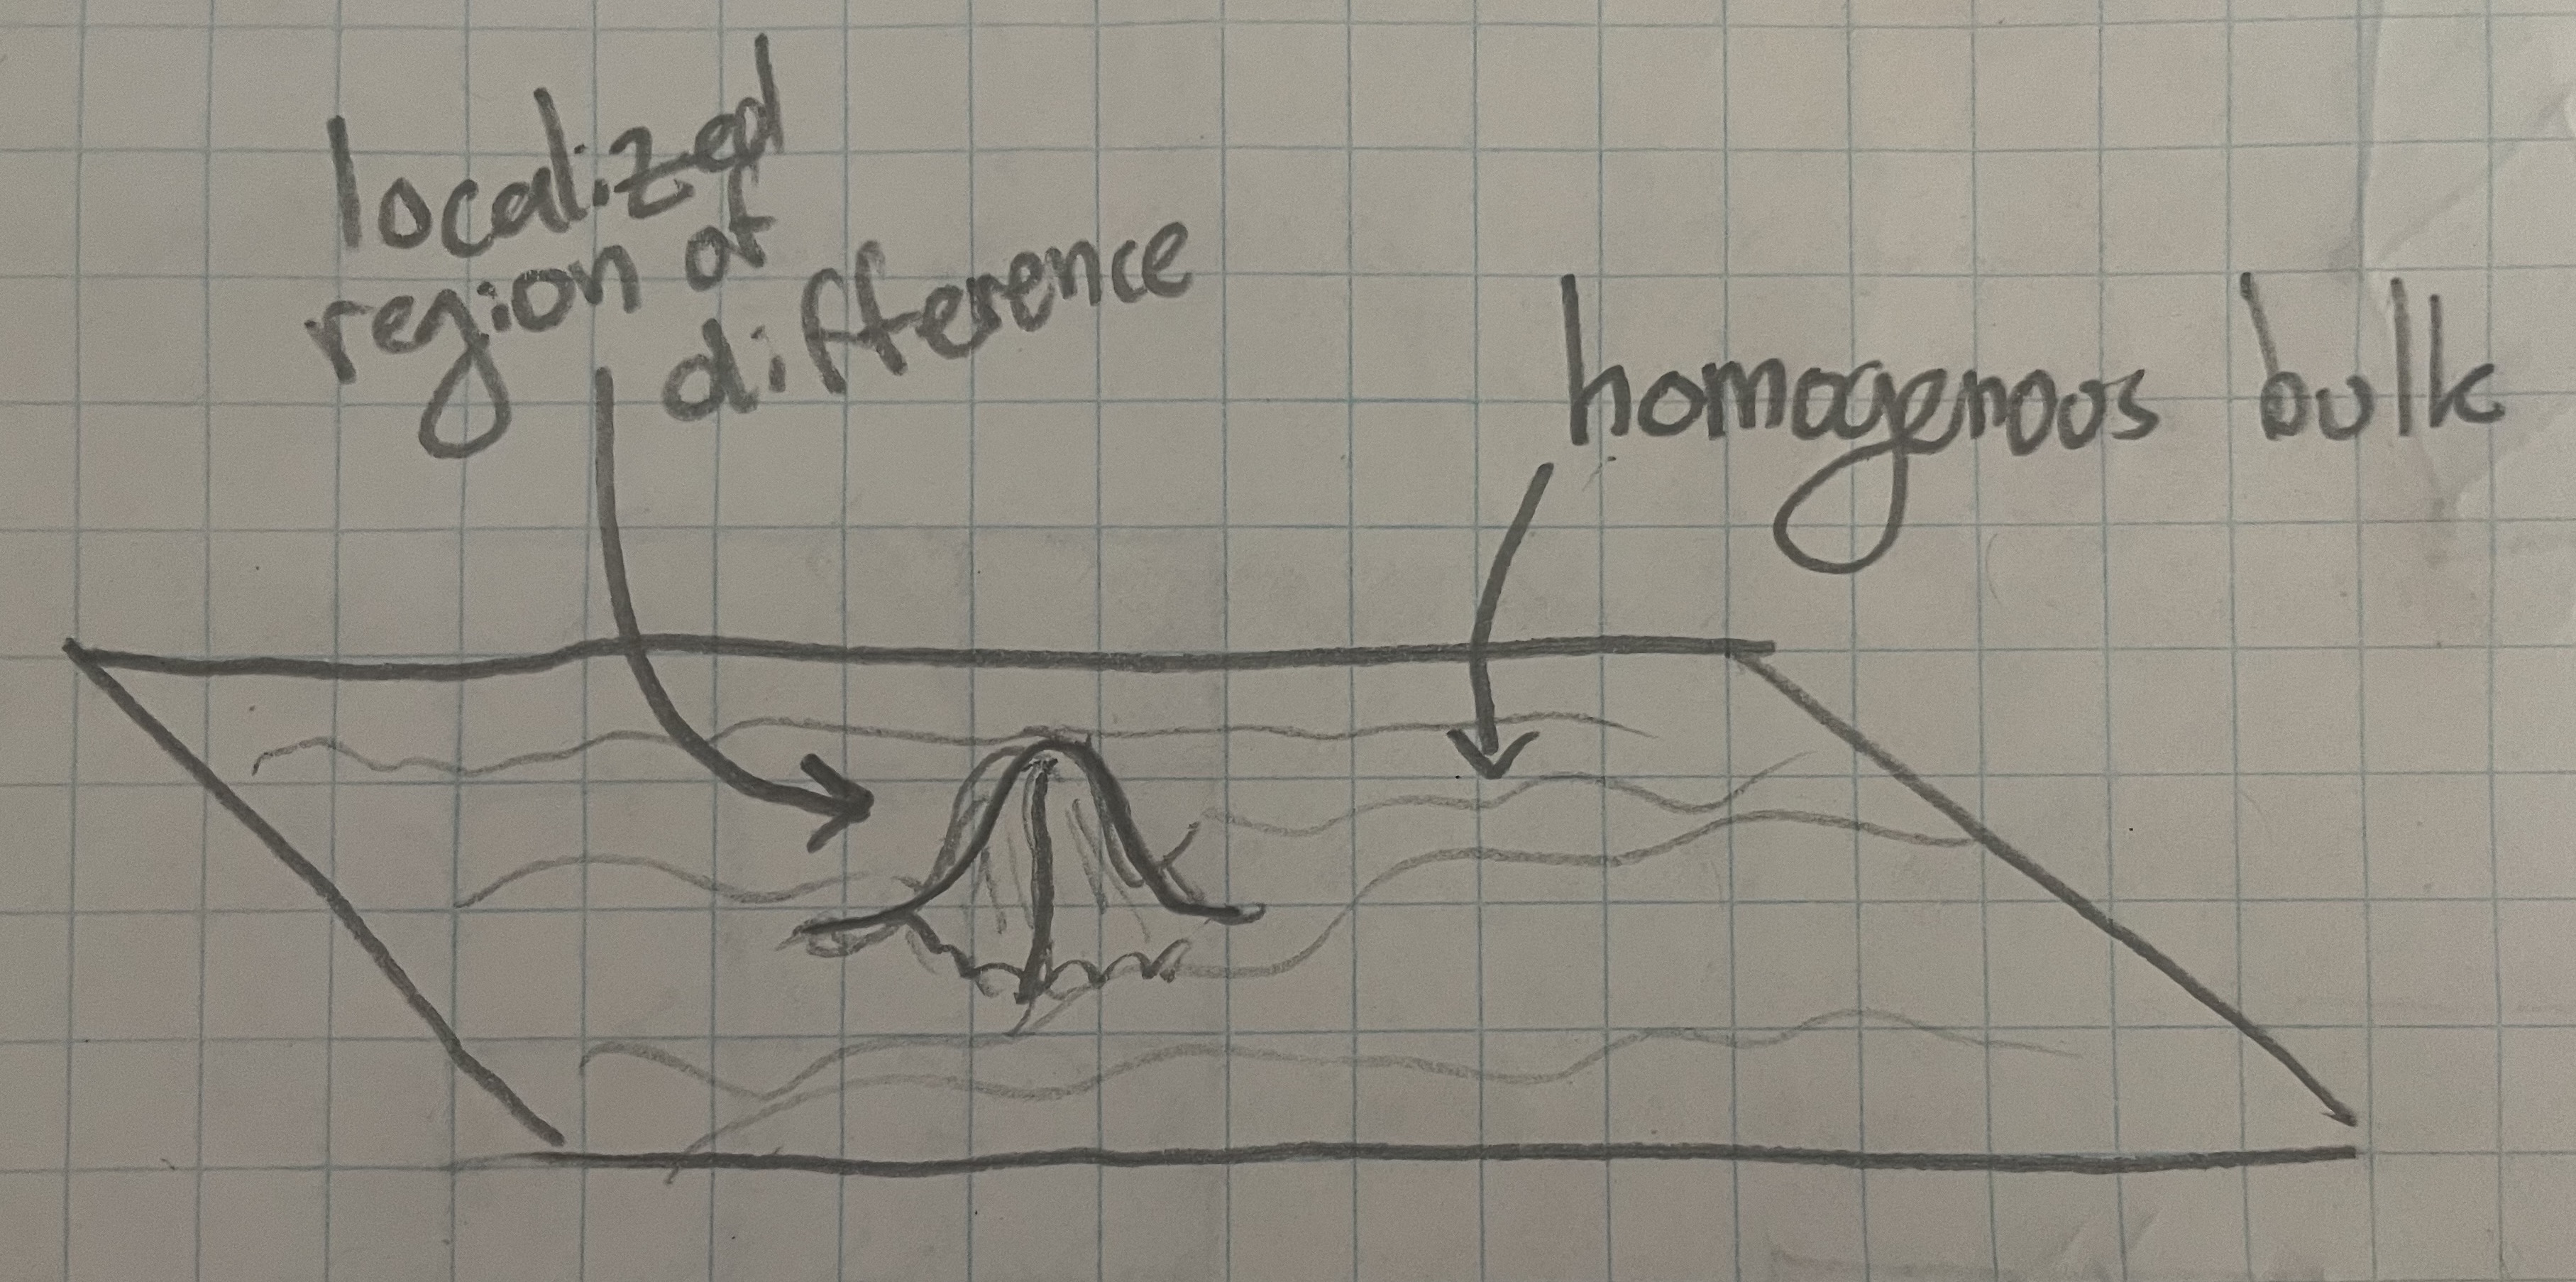 localized
region of
difference
homogenous bulk